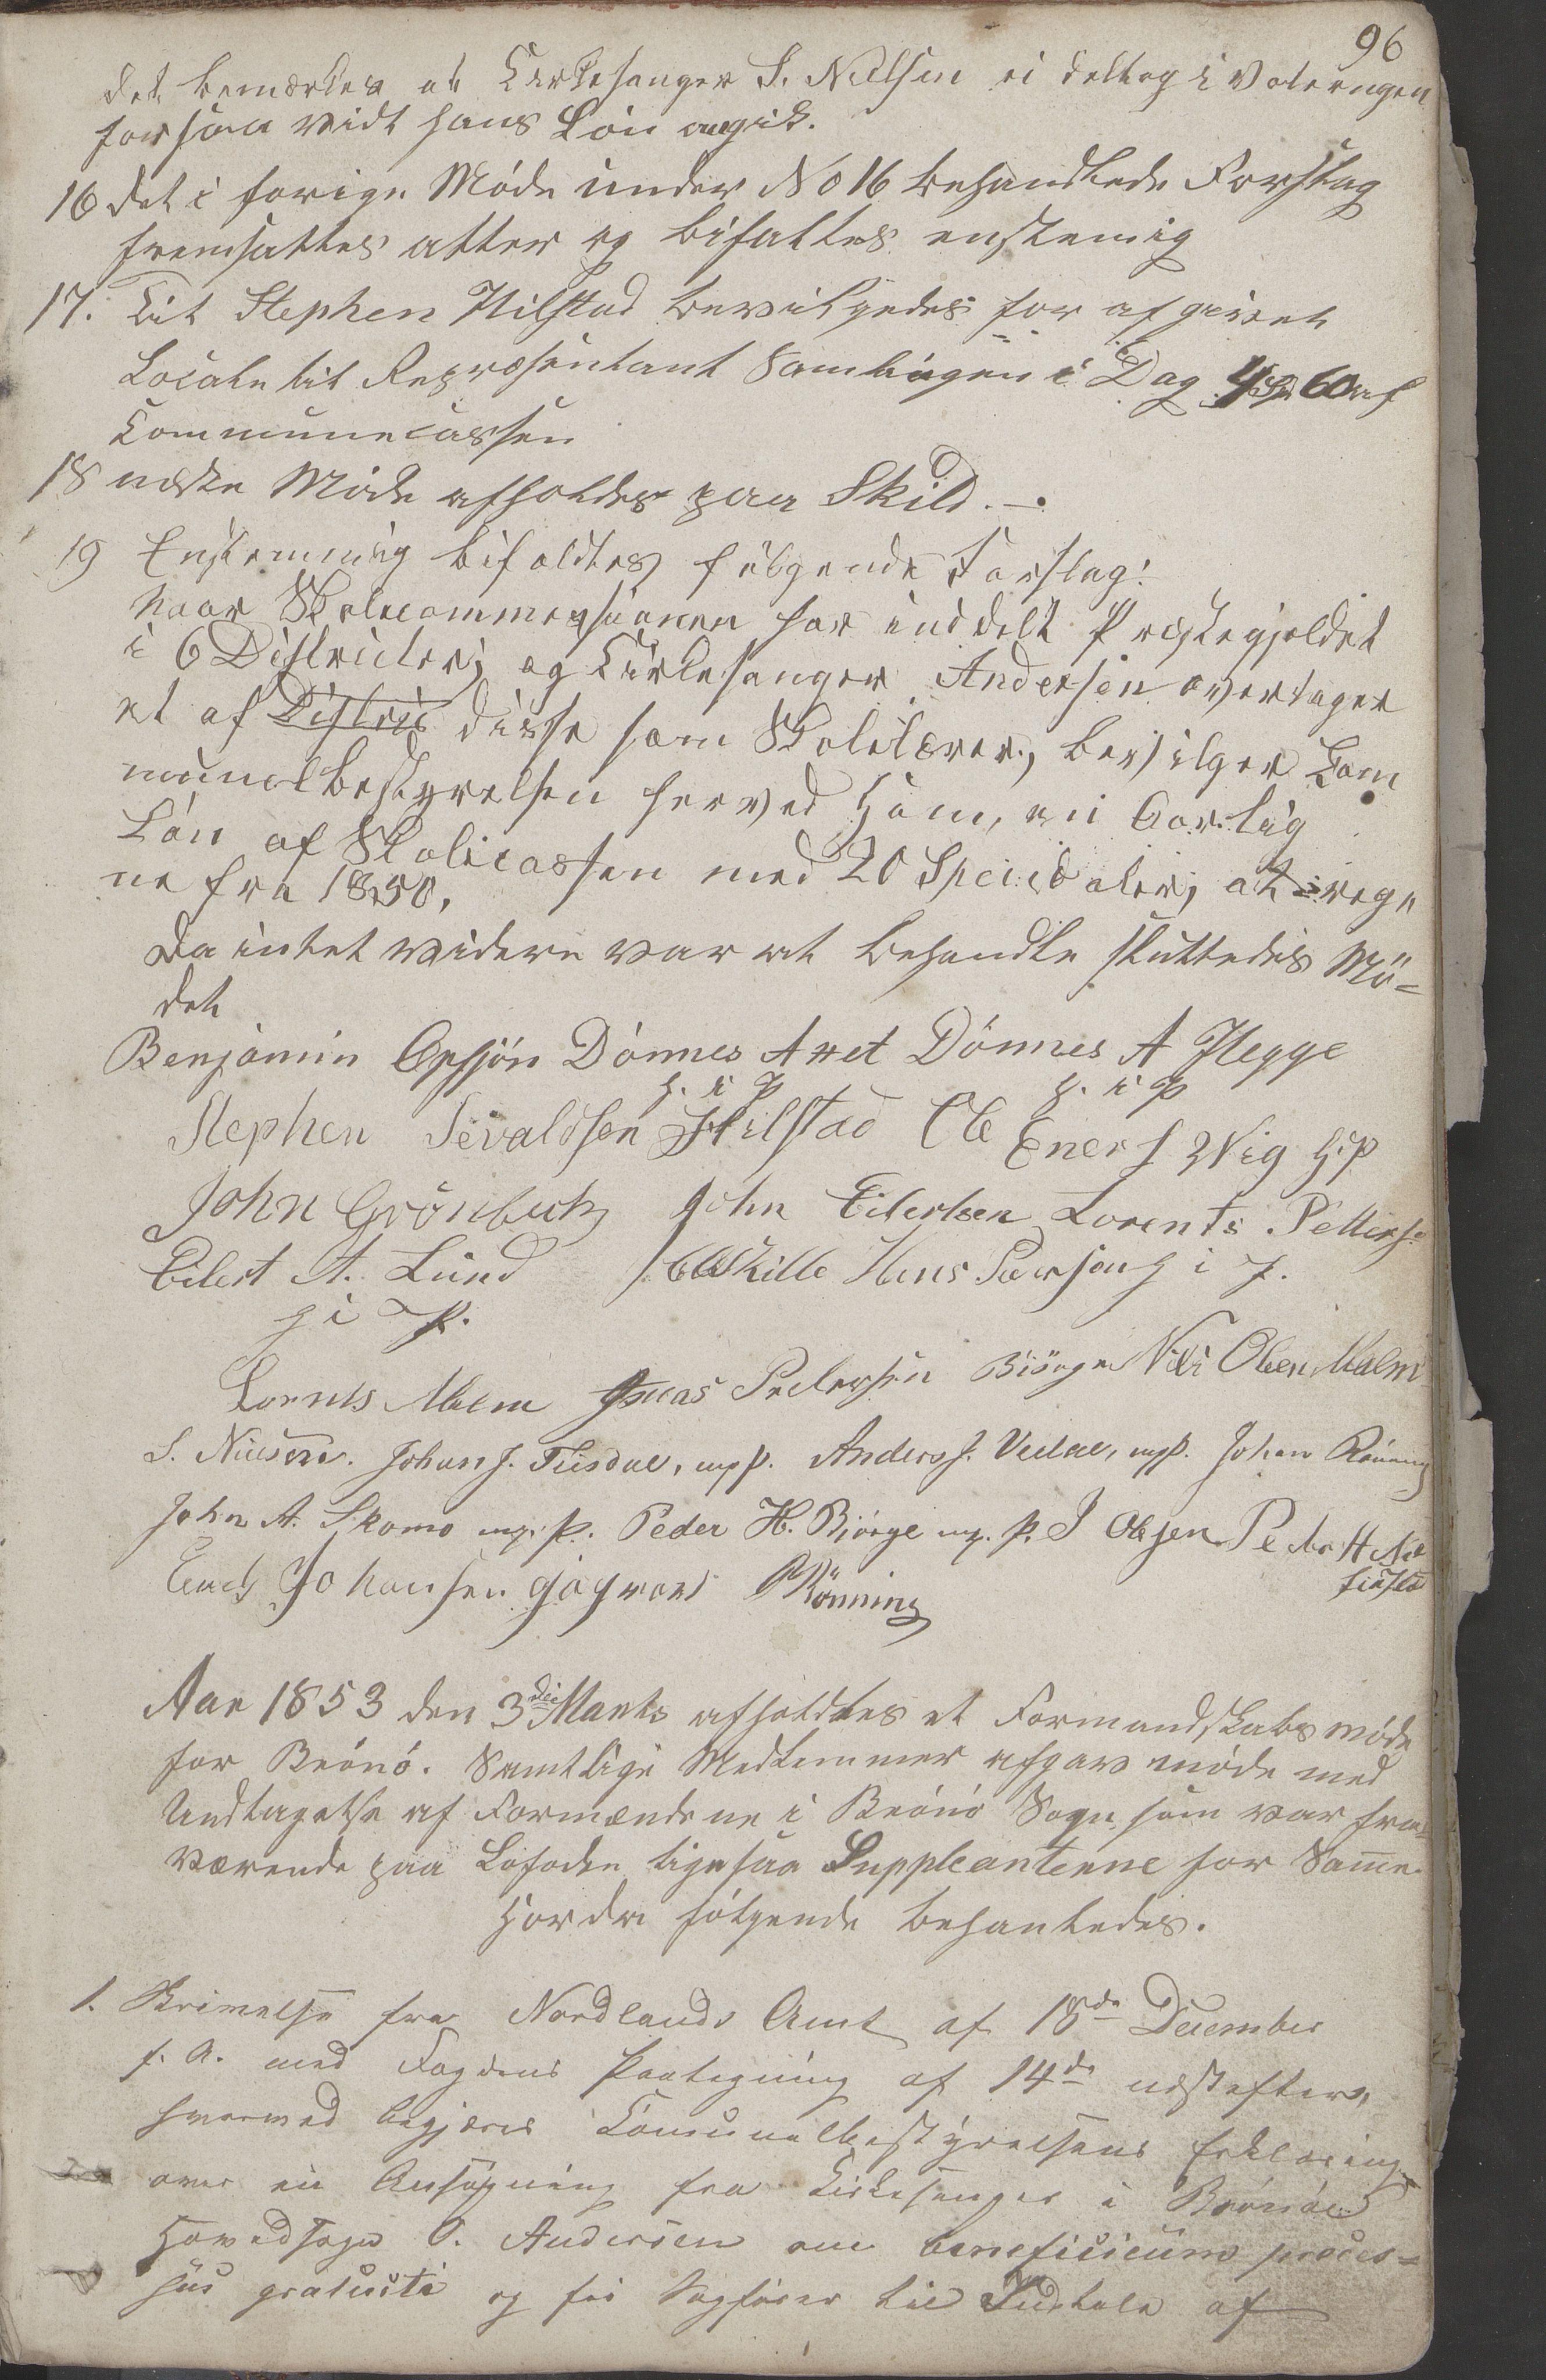 96
det bemærkes at Kirkesanger S. Nilsen ei deltog i Voteringen
for saa vidt hans Løn angik.
16 det i forige Møde under No 16 behandlede Forslag
fremsattes atter og bifaltes enstemig
17. Til Stephen Hilstad bevilgedes for afgivet
Locale til Repræsentant Samlingen i Dag 4 Spd 60 af
Communecassen
18 næste Møde afholdes paa Skild.—.
19 Enstemmig bifaldtes følgende Forslag:
Naar Skolecommissionen har inddelt Præstegjeldet
i 6 Districter, og Kirkesanger Andersen overtager
et af Distric disse som Skolelærer, bevilger Kom
munalbestyrelsen herved Ham, en Aarlig
Løn af Skolecassen med 20 Speciedaler, at rege
ne fra 1850,
Da intet videre var at behandle sluttedes Mö=
det
Benjamin Opsjøn Dønnes A Dønnes A Hegge
h. i P h. i P
Stephen Sevaldsen Hilstad Ole Eners Wig HiP
John Grønbech John Eilertsen Lorents Petters:
Eilert A. Lund Skille Hans Pedersen h i P.
h i P.
Lornts Malm Pedersen Biörge Olsen Malm
S. Nielsen. Johan J. Tiisdal, mpp. Anders J. Vedal, mpp. Johan Rönning
John A. Skomo mp. p. Peder H. Biørge mp. p. J Olsen Peder H
Johansen Rönning
Aar 1853 den 3die Marts afholdtes et Formandskabsmøde
for Brønø. Samtlige Medlemmer afgav møde med
Undtagelse af Formændene i Brønø Sogn som var fra=
værende paa Lofoden ligesaa Suppleanterne for Samme.
Hvorda følgende behanledes.
1. Skrivelse fra Nordlands Amt af 18de December
f. A. med Fogdens Paategning af 14de næstefter,
hvorved begjæres Comunalbestyrelsens Erklæring
over en Ansøgning fra Kirkesanger i Brønøe
Hovedsogn O. Andersen om beneficium proces=
sus gratuiti og fri Sagfører til Indtale af